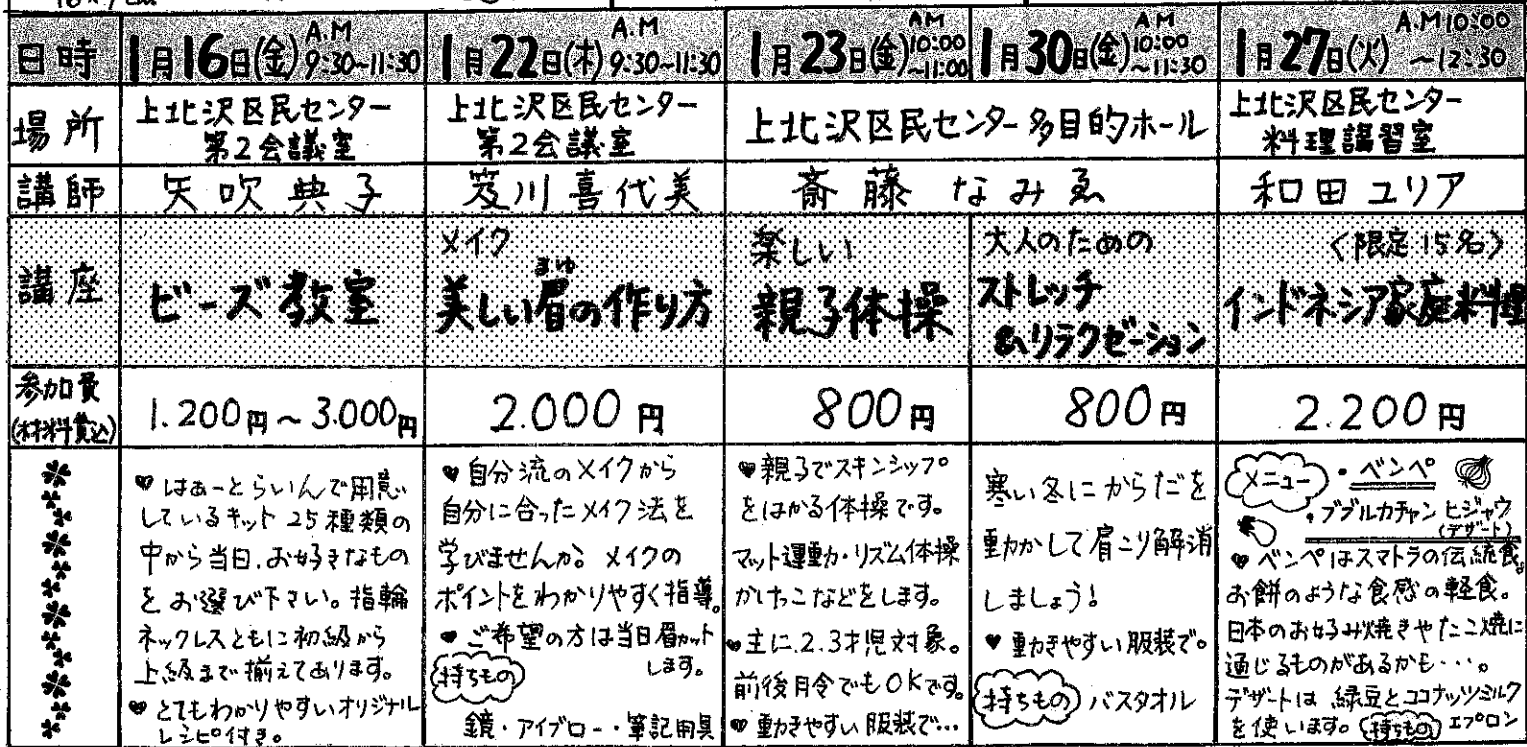 日時
1月16日(金) A.M 9:30~11:30
1月22日(木) A.M 9:30~11:30
1月23日(金) AM 10:00~11:00
1月30日(金) AM 10:00~11:30
1月27日(火) A.M 10:00~12:30
場所
上北沢区民センター
第2会議室
上北沢区民センター
第2会議室
上北沢区民センター多目的ホール
上北沢区民センター
料理講習室
講師
矢吹典子
笈川喜代美
斎藤なみゑ
和田ユリア
講座
ビーズ教室
メイク
まゆ
美しい眉の作り方
楽しい
親子体操
大人のための
ストレッチ
&リラクゼーション
〈限定15名〉
インドネシア家庭料理
参加費
(材料費込)
1.200円~3.000円
2.000円
800円
800円
2.200円
♥はあーとらいんで用意
しているキット25種類の
中から当日、お好きなもの
をお選び下さい。指輪
ネックレスともに初級から
上級まで揃えてあります。
♥とてもわかりやすいオリジナル
レシピ付き。
♥自分流のメイクから
自分に合ったメイク法を
学びませんか。メイクの
ポイントをわかりやすく指導。
♥ご希望の方は当日眉カット
します。
持ちもの
鏡・アイブロー・筆記用具
♥親子でスキンシップ
をはかる体操です。
マット運動・リズム体操
かけっこなどをします。
♥主に2.3才児対象。
前後月令でもOKです。
♥動きやすい服装で…
寒い冬にからだを
動かして肩こり解消
しましょう!
♥動きやすい服装で。
持ちもの バスタオル
メニュー ・ベンペ
・ブブルカチャンヒジャウ
(デザート)
♥ベンペはスマトラの伝統食。
お餅のような食感の軽食。
日本のお好み焼きやたこ焼に
通じるものがあるかも…。
デザートは緑豆とココナッツミルク
を使います。持ちもの エプロン